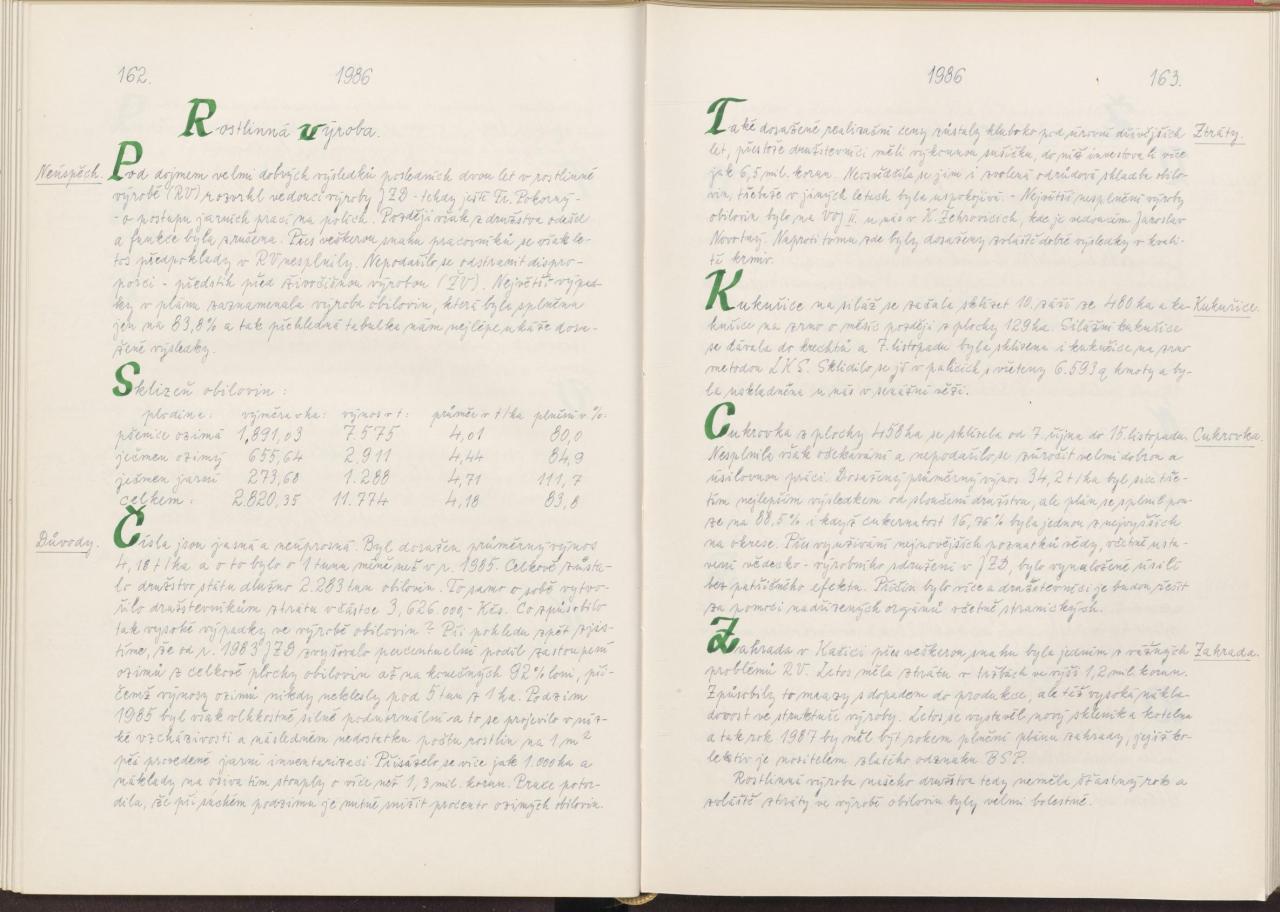 162.
1986
Rostlinná výroba.
Neúspěch.
Pod dojmem velmi dobrých výsledků posledních dvou let v rostlinné
výrobě (RV) rozvrhl vedoucí výroby JZD - tehdy ještě Fr. Pokorný -
- o postupu jarních prací na polích. Později však z družstva odešel
a funkce byla zrušena. Přes veškerou snahu pracovníků se však le-
tos předpoklady v RV nesplnily. Nepodařilo se odstranit dispro-
porci - předstih před živočišnou výrobou (ŽV). Největší výpad-
ky v plánu zaznamenala výroba obilovin, která byla splněna
jen na 83,8% a tak přehledná tabulka nám nejlépe ukáže dosa-
žené výsledky.
Sklizeň obilovin:
plodina: výměra v ha: výnos v t: průměr v t/ha plnění v %:
pšenice ozimá 1.891,03 7.575 4,01 80,0
ječmen ozimý 655,64 2.911 4,44 84,9
ječmen jarní 273,68 1.288 4,71 111,7
celkem: 2.820,35 11.774 4,18 83,8
Důvody.
Čísla jsou jasná a neúprosná. Byl dosažen průměrný výnos
4,18 t/ha a o to bylo o 1 tunu méně než v r. 1985. Celkově zůsta-
lo družstvo státu dlužno 2.283 tun obilovin. To samo o sobě vytvo-
řilo družstevníkům ztrátu v částce 3,626.000,- Kčs. Co způsobilo
tak vysoké výpadky ve výrobě obilovin? Při pohledu zpět zjis-
tíme, že od r. 1983 JZD zvyšovalo percentuelní podíl zastoupení
ozimů z celkové plochy obilovin až na konečných 92% loni, při-
čemž výnosy ozimů nikdy neklesly pod 5 tun z 1 ha. Podzim
1985 byl však vlhkostně silně podnormální a to se projevilo v níz-
ké vzcházivosti a následném nedostatku počtu rostlin na 1 m²
při provedené jarní inventarizaci. Přisázelo se více jak 1.000 ha a
náklady na osiva tím stouply o více než 1,3 mil. korun. Praxe potvr-
dila, že při suchém podzimu je nutné snížit procento ozimých obilovin.
1986
163.
Také dosažené realizační ceny zůstaly hluboko pod úrovní dřívějších
Ztráty.
let, přestože družstevníci měli výkonnou sušičku, do níž investovali více
jak 6,5 mil. korun. Neosvědčila se jim i zvolená odrůdová skladba obilo-
vin, třebaže v jiných letech byla uspokojivá. - Největší nesplnění výroby
obilovin bylo na VOJ II. u nás v K. Žehrovicích, kde je vedoucím Jaroslav
Novotný. Naproti tomu zde byly dosaženy zvláště dobré výsledky v kvali-
tě krmiv.
Kukuřice na siláž se začala sklízet 10. září ze 480 ha a ku-
Kukuřice.
kuřice na zrno o měsíc později z plochy 129 ha. Silážní kukuřice
se dávala do krechtů a 7. listopadu byla sklizena i kukuřice na zrno
metodou LKS. Sklidilo se jí v palicích s vřeteny 6.593 q hmoty a by-
la uskladněna u nás v senážní věži.
Cukrovka z plochy 458 ha se sklízela od 7. října do 15. listopadu.
Cukrovka.
Nesplnila však očekávání a nepodařilo se zúročit velmi dobrou a
úsilovnou práci. Dosažený průměrný výnos 34,2 t/ha byl sice tře-
tím nejlepším výsledkem od sloučení družstva, ale plán se splnil pou-
ze na 88,5% i když cukernatost 16,76% byla jednou z nejvyšších
na okrese. Přes využívání nejnovějších poznatků vědy, včetně usta-
vení vědecko-výrobního sdružení v JZD, bylo vynaložené úsilí
bez patřičného efektu. Příčin bylo více a družstevníci je budou řešit
za pomoci nadřízených orgánů včetně stranických.
Zahrada v Kačici přes veškerou snahu byla jedním z vážných
Zahrada.
problémů RV. Letos měla ztrátu v tržbách ve výši 1,2 mil. korun.
Způsobily to mrazy s dopadem do produkce, ale též vysoká nákla-
dovost ve struktuře výroby. Letos se vystavěl nový skleník a kotelna
a tak rok 1987 by měl být rokem plnění plánu zahrady, jejíž ko-
lektiv je nositelem zlatého odznaku BSP.
Rostlinná výroba našeho družstva tedy neměla šťastný rok a
zvláště ztráty ve výrobě obilovin byly velmi bolestné.